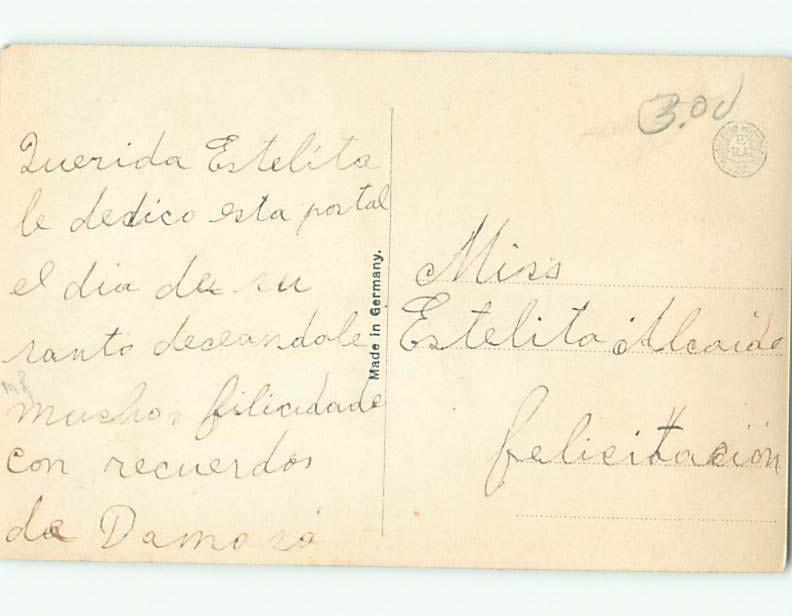 Querida Estelita
le dedico esta postal
el dia de su
santo deceandole
muchos filicidade
con recuerdos
de Damosó
Made in Germany.
3.00
Miss
Estelita Alcaide
felicitación